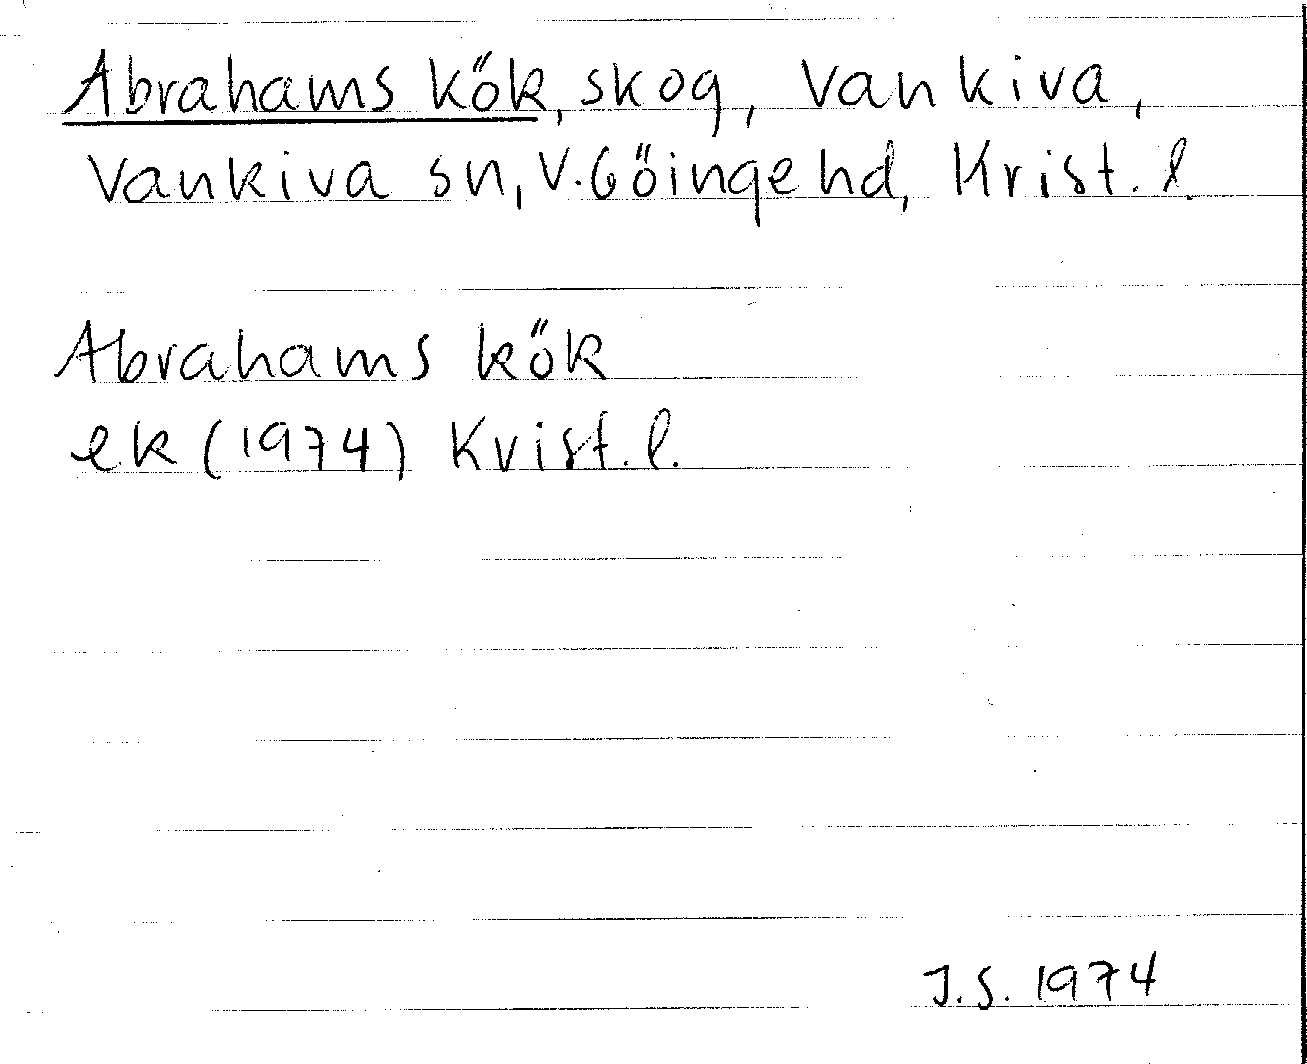 Abrahams kök, skog, Vankiva,
Vankiva sn, V. Göinge hd, Krist. l.
Abrahams kök
ek (1974) Krist. l.
J.S. 1974